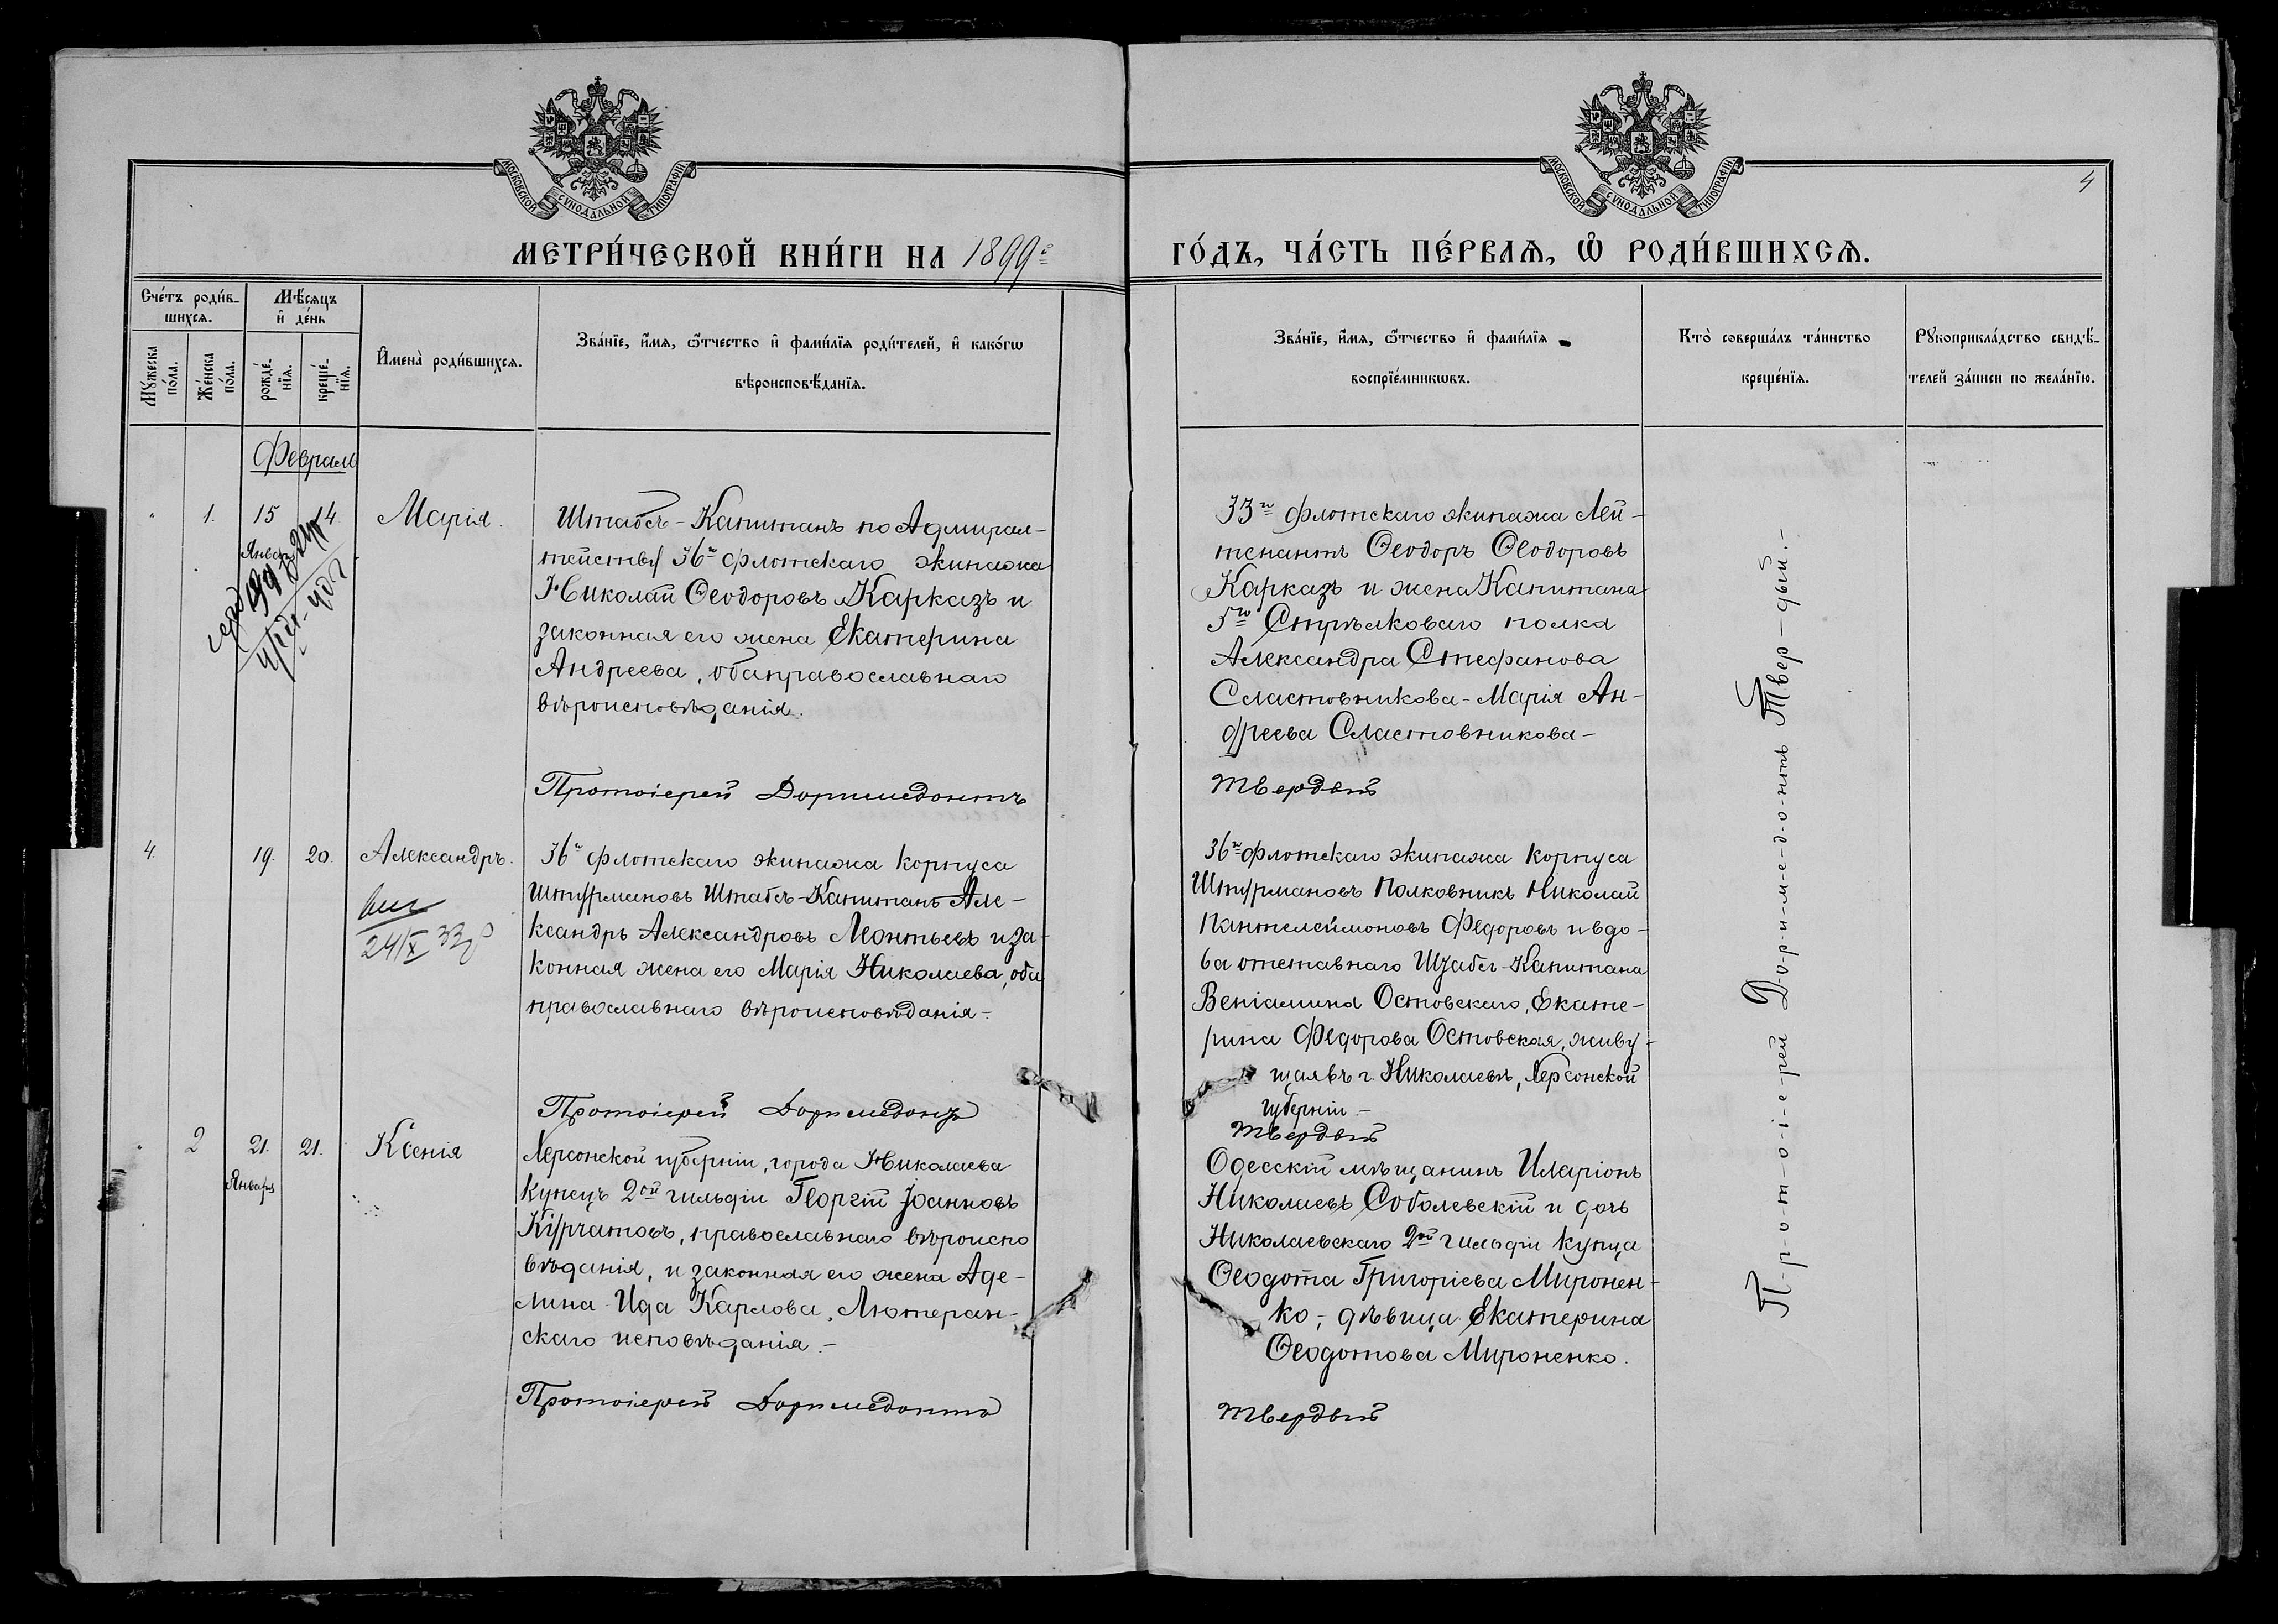 МОСКОВСКОЙ СѴНОДАЛЬНОЙ ТИПОГРАФІИ.
МОСКОВСКОЙ СѴНОДАЛЬНОЙ ТИПОГРАФІИ.
4
МЕТРИ́ЧЕСКОЙ КНИ́ГИ НА 1899 г.
ГО́ДЪ, ЧА́СТЬ ПЕ́РВАѦ, Ѽ РОДИ́ВШИХСѦ.
Сче́тъ роди́в-
шихсѧ.
Мꙋ́жеска
по́ла.
Же́нска
по́ла.
Мѣ́сѧцъ
и҆ де́нь
рожде́-
нїѧ.
креще́-
нїѧ.
И҆мена̀ роди́вшихсѧ.
Зва́нїе, и҆́мѧ, ѻ҆́тчество и҆ фами́лїѧ роди́телей, и҆ како́гѡ
вѣроисповѣ́данїѧ.
Зва́нїе, и҆́мѧ, ѻ҆́тчество и҆ фами́лїѧ
воспрїе́мникѡвъ.
Кто̀ соверша́лъ та́инство
креще́нїѧ.
Рꙋкоприкла́дство свидѣ́-
телей за́писи по жела́нїю.
Февраль
1. 15 14 Марія.
Января
Штабсъ-Капитанъ по Адмирал-
тейству 36го флотскаго экипажа
Николай Ѳеодоровъ Карказъ и
законная его жена Екатерина
Андреева, оба православнаго
вѣроисповѣданія.
Протоіерей Доримедонтъ
33го флотскаго экипажа Лей-
тенантъ Ѳеодоръ Ѳеодоровъ
Карказъ и жена Капитана
5го Стрѣлковаго полка
Александра Стефанова
Сластовникова - Марія Ан-
дреева Сластовникова -
Твердый
4. 19. 20. Александръ.
24/X 33
36го флотскаго экипажа корпуса
Штурмановъ Штабсъ-Капитанъ Але-
ксандръ Александровъ Леонтьевъ и за-
конная жена его Марія Николаева, оба
православнаго вѣроисповѣданія -
Протоіерей Доримедонтъ
36го флотскаго экипажа корпуса
Штурмановъ Полковникъ Николай
Пантелеймоновъ Федоровъ и вдо-
ва отставнаго Штабсъ-Капитана
Веніамина Остовскаго, Екате-
рина Федорова Остовская, живу-
щая въ г. Николаевѣ, Херсонской
губерніи. -
Твердый
2 21. 21. Ксенія
Января
Херсонской губерніи, города Николаева
купецъ 2ой гильдіи Георгій Іоанновъ
Курчатовъ, православнаго вѣроиспо
вѣданія, и законная его жена Аде-
лина-Ида Карлова, Лютеран-
скаго исповѣданія. -
Протоіерей Доримедонтъ
Одесскій мѣщанинъ Иларіонъ
Николаевъ Соболевскій и дочь
Николаевскаго 2ой гильдіи купца
Ѳеодота Григоріева Миронен-
ко, - дѣвица Екатерина
Ѳеодотова Мироненко.
Твердый
П-р-о-т-о-і-е-рей Д-о-р-и-м-е-д-о-нтъ Твер-дый. -